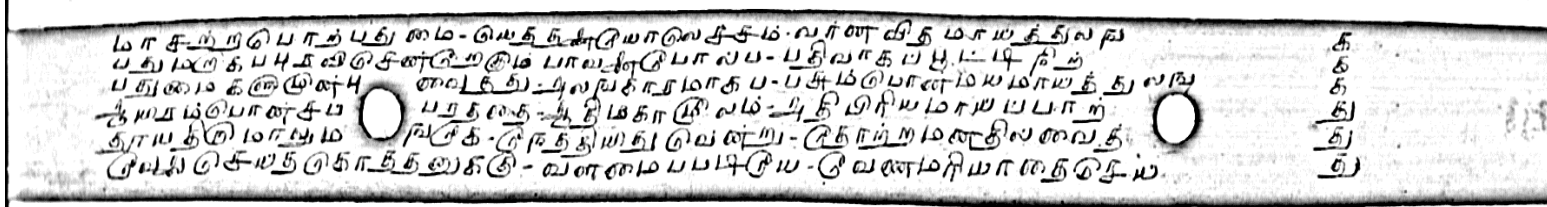 மாசற்றபொற்பதுமை-யெத்தனேயாலெச்சம்-வர்ணவிதமாய்த்துலங க
பாவனபோலப-பதிவாகப்பூட்டிநிற் க
பதுமைகளுமுன்பு வைத்து-அலங்காரமாகப-பசும்பொன்மயமாய்த்துலங க
ஆயிரம்பொன்சப பரத்தை-ஆதிமகாமூலம்-அதிபிரியமாயப்பாற் து
தூயதிருமாலும ஙகே-நேத்தியிதுவென்று-தோற்றமனதிலவைத் து
செய்தகொத்தனுககு-வளமைபபடியே-வேணமரியாதைசெய து